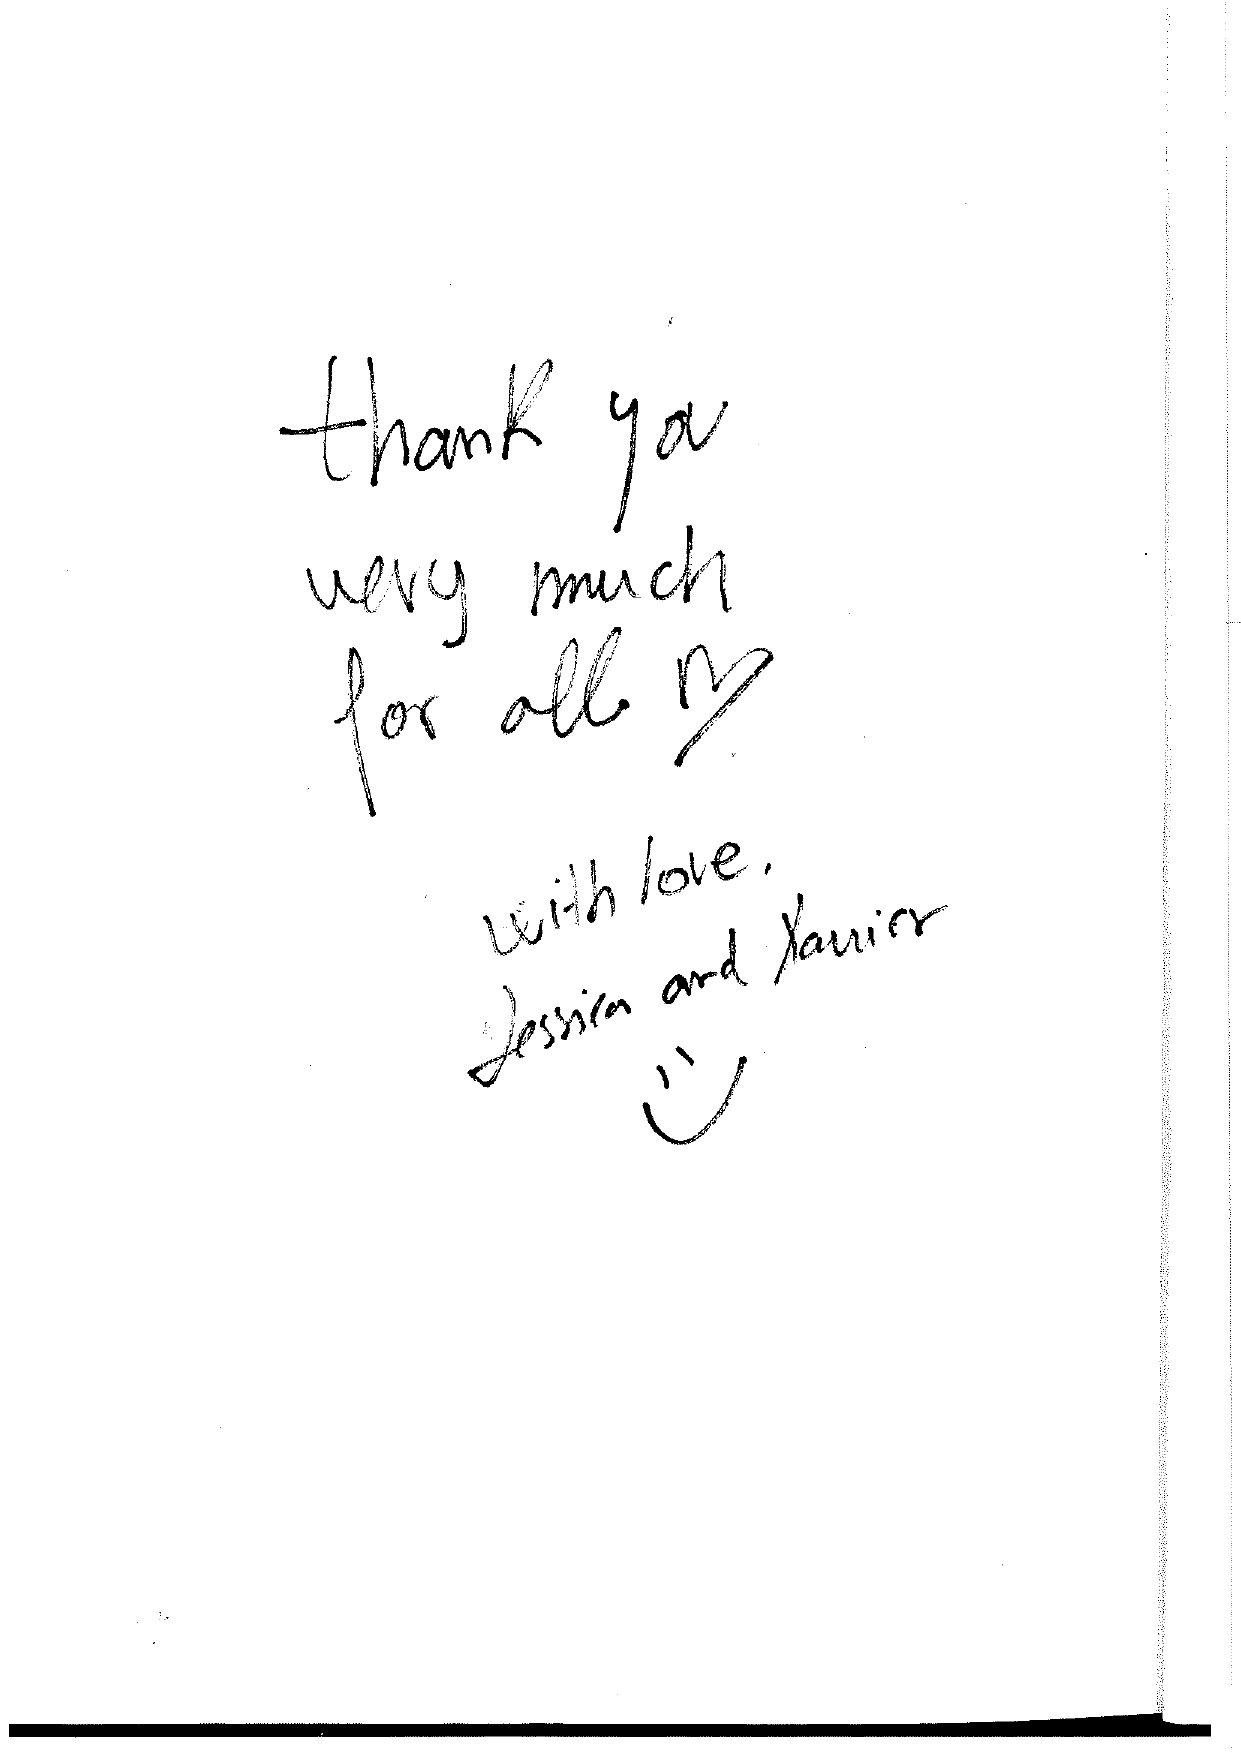 thank you
very much
for all ♡
with love,
Jessica and Xavier